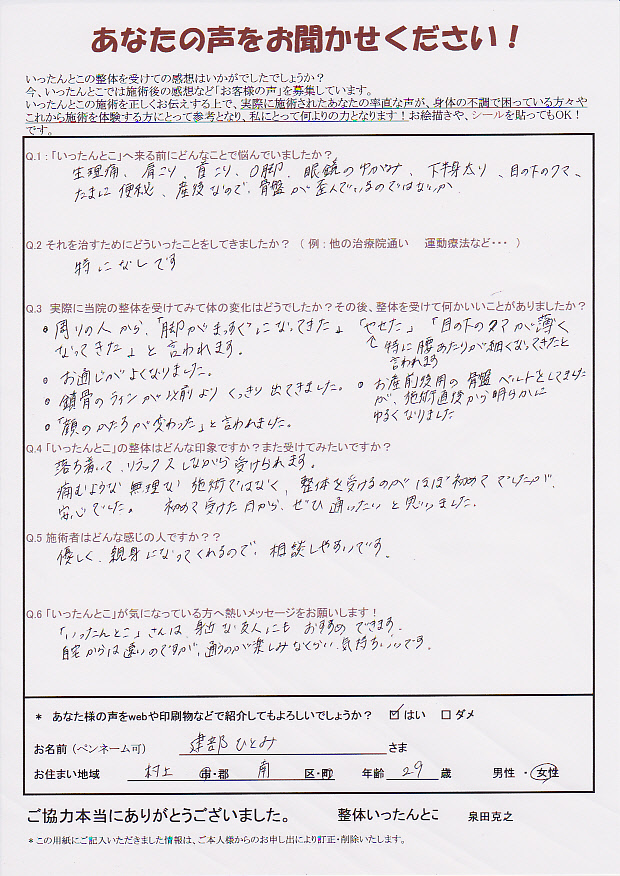 あなたの声をお聞かせください！
いったんとこの整体を受けての感想はいかがでしたでしょうか？
今、いったんとこでは施術後の感想など「お客様の声」を募集しています。
いったんとこの施術を正しくお伝えする上で、実際に施術されたあなたの率直な声が、身体の不調で困っている方々や
これから施術を体験する方にとって参考となり、私にとって何よりの力となります！お絵描きや、シールを貼ってもOK！
です。
Q.1：「いったんとこ」へ来る前にどんなことで悩んでいましたか？
生理痛、肩こり、首こり、O脚、眼鏡のゆがみ、下半身太り、目の下のクマ、
たまに便秘、産後なので、骨盤が歪んでいるのではないか
Q.2 それを治すためにどういったことをしてきましたか？（ 例：他の治療院通い　運動療法など・・・ ）
特になしです
Q.3 実際に当院の整体を受けてみて体の変化はどうでしたか？その後、整体を受けて何かいいことがありましたか？
・周りの人から、「脚がまっすぐになってきた」「やせた」「目の下のクマが薄く
なってきた」と言われます。
↑特に腰あたりが細くなってきたと
言われます
・お通じがよくなりました。
・鎖骨のラインが以前よりくっきり出てきました。
・「顔のかたちが変わった」と言われました。
・お産前後用の骨盤ベルトをしてました
が、施術直後から明らかに
ゆるくなりました
Q.4「いったんとこ」の整体はどんな印象ですか？また受けてみたいですか？
落ち着いて、リラックスしながら受けられます。
痛むような無理な施術ではなく、整体を受けるのがほぼ初めてでしたが、
安心でした。初めて受けた日から、ぜひ通いたいと思いました。
Q.5 施術者はどんな感じの人ですか？？
優しく、親身になってくれるので、相談しやすいです。
Q.6「いったんとこ」が気になっている方へ熱いメッセージをお願いします！
「いったんとこ」さんは、身近な友人にもおすすめできます。
自宅からは遠いのですが、通うのが楽しみなくらい、気持ちいいです。
＊ あなた様の声をwebや印刷物などで紹介してもよろしいでしょうか？ ☑はい □ダメ
お名前（ペンネーム可） 建部ひとみ さま
お住まい地域 村上 市・郡 南 区・町 年齢 29 歳 男性 ・女性
ご協力本当にありがとうございました。 整体いったんとこ 泉田克之
＊この用紙にご記入いただきました情報は、ご本人様からのお申し出により訂正・削除いたします。